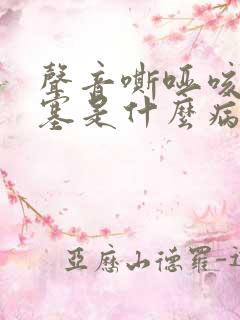 聲音嘶啞咳
塞是什麼病
亞歷山德羅-迈